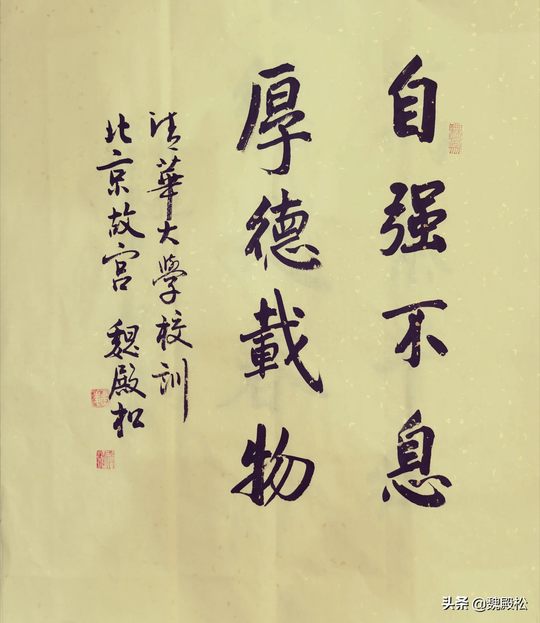 自强不息
厚德載物
清華大學校訓
北京故宫 魏殿松
头条 @魏殿松